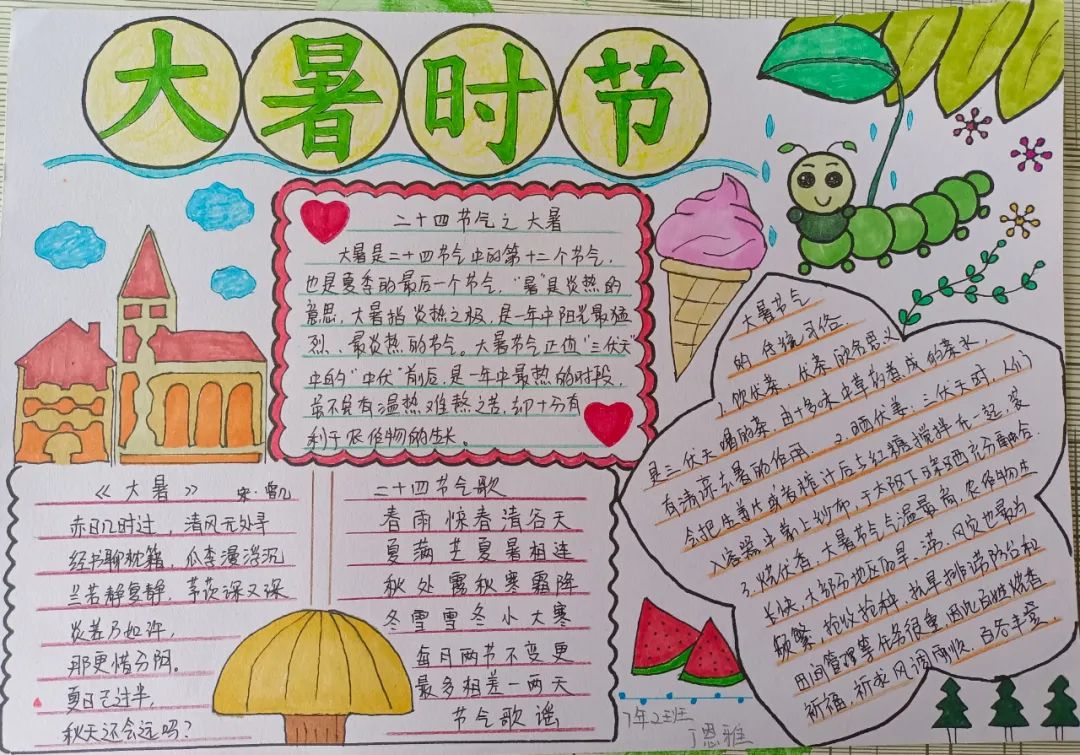 大暑时节
二十四节气之大暑
大暑是二十四节气中的第十二个节气，
也是夏季的最后一个节气，“暑”是炎热的
意思，大暑指炎热之极，是一年中阳光最猛
烈、最炎热的节气。大暑节气正值“三伏天”
中的“中伏”前后，是一年中最热的时段，
虽不免有湿热难熬之苦，却十分有
利于农作物的生长。
大暑节气
的传统习俗
1.饮伏茶，伏茶顾名思义
是三伏天喝的茶，由十多味中草药煮成的茶水，
有清凉去暑的作用．2.晒伏姜：三伏天时，人们
会把生姜片或者榨汁后与红糖搅拌在一起，装
入容器中蒙上纱布，于太阳下晾晒充分融合．
3.烧伏香，大暑节气气温最高，农作物生
长快，大部分地区的旱、涝、风灾也最为
频繁，抢收抢种，抗旱排涝防台和
田间管理等任务很重，因此百姓烧香
祈福，祈求风调雨顺，百谷丰登．
《大暑》 宋·曾几
赤日几时过，清风无处寻
经书聊枕籍，瓜李漫浮沉
兰若静复静，茅茨深又深
炎蒸乃如许，
那更惜分阴。
夏日已过半，
秋天还会远吗？
二十四节气歌
春雨惊春清谷天
夏满芒夏暑相连
秋处露秋寒霜降
冬雪雪冬小大寒
每月两节不变更
最多相差一两天
节气歌谣
7年2班
丁恩雅